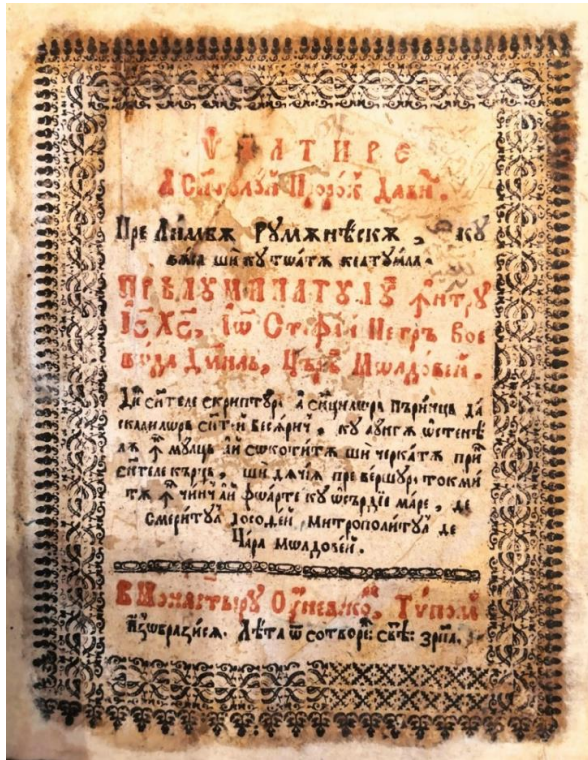 ѰАТИРЕ
А Сфн҃тулуй Прорѡк Давид.
Пре Лимбѫ Румѫнѣскѫ, ку
зѧса ши ку тѡатѫ келтуѧла
ПРѢЛУМИНАТУЛУЙ ꙟтру
І҃С Х҃С, Іѡ Стефан Петръ Вое
вѡда Дѡмнꙋль, Цѣрїй Мѡлдовей.
Дин сфн҃теле скриптурй а сфинцилѡръ Пъринць да
скалилѡръ сфн҃тей Бесѣричй, ку лунгѫ ѡстенѣ
лѫ ꙟ мулцй ай сокотитѫ ши черкатѫ прин
сфн҃теле кърць, ши де ачїѧ пре вершурй токми
тѫ ꙟ чинчй ай фѡарте ку ѡсърдїе маре, де
Смеритул Досоѳей, митрополитул де
Цара Мѡлдовей.
В Монастыру Оуневско, Тѵпом
изѡбразисѧ. Лѣта ѿ сотворе: свѣ: ЗРПА.